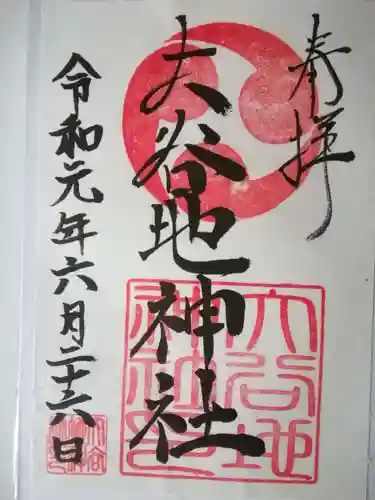 奉拝
大谷地神社
令和元年六月二十六日
大谷地
神社